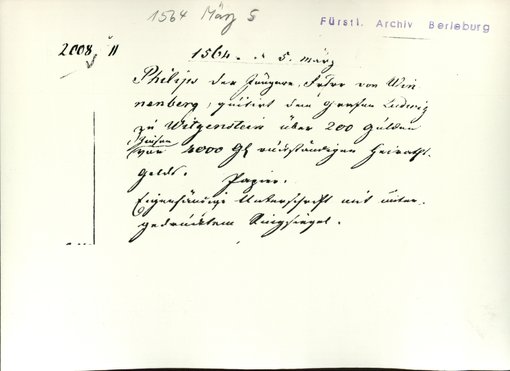 1564 März 5
Fürstl. Archiv Berleburg
2008. II
1564. 5. März
Philips der Jüngere, Herr von Win
nenberg, quittirt dem Grafen Ludwig
zu Witgenstein über 200 Gulden
Zinsen
von 4000 Gl rückständigen Heiraths
gelds. Papier.
Eigenhändige Unterschrift mit unter
gedrücktem Ringsiegel.